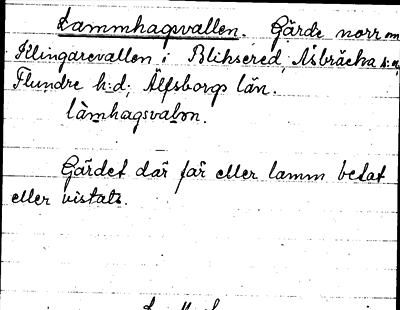 Lammhagsvallen. Gärde norr om
Klingarevallen i Bliksered, Åsbräcka s:n,
Flundre h:d; Älfsborgs län.
làmhagsvalən.
Gärdet där får eller lamm betat
eller vistats.